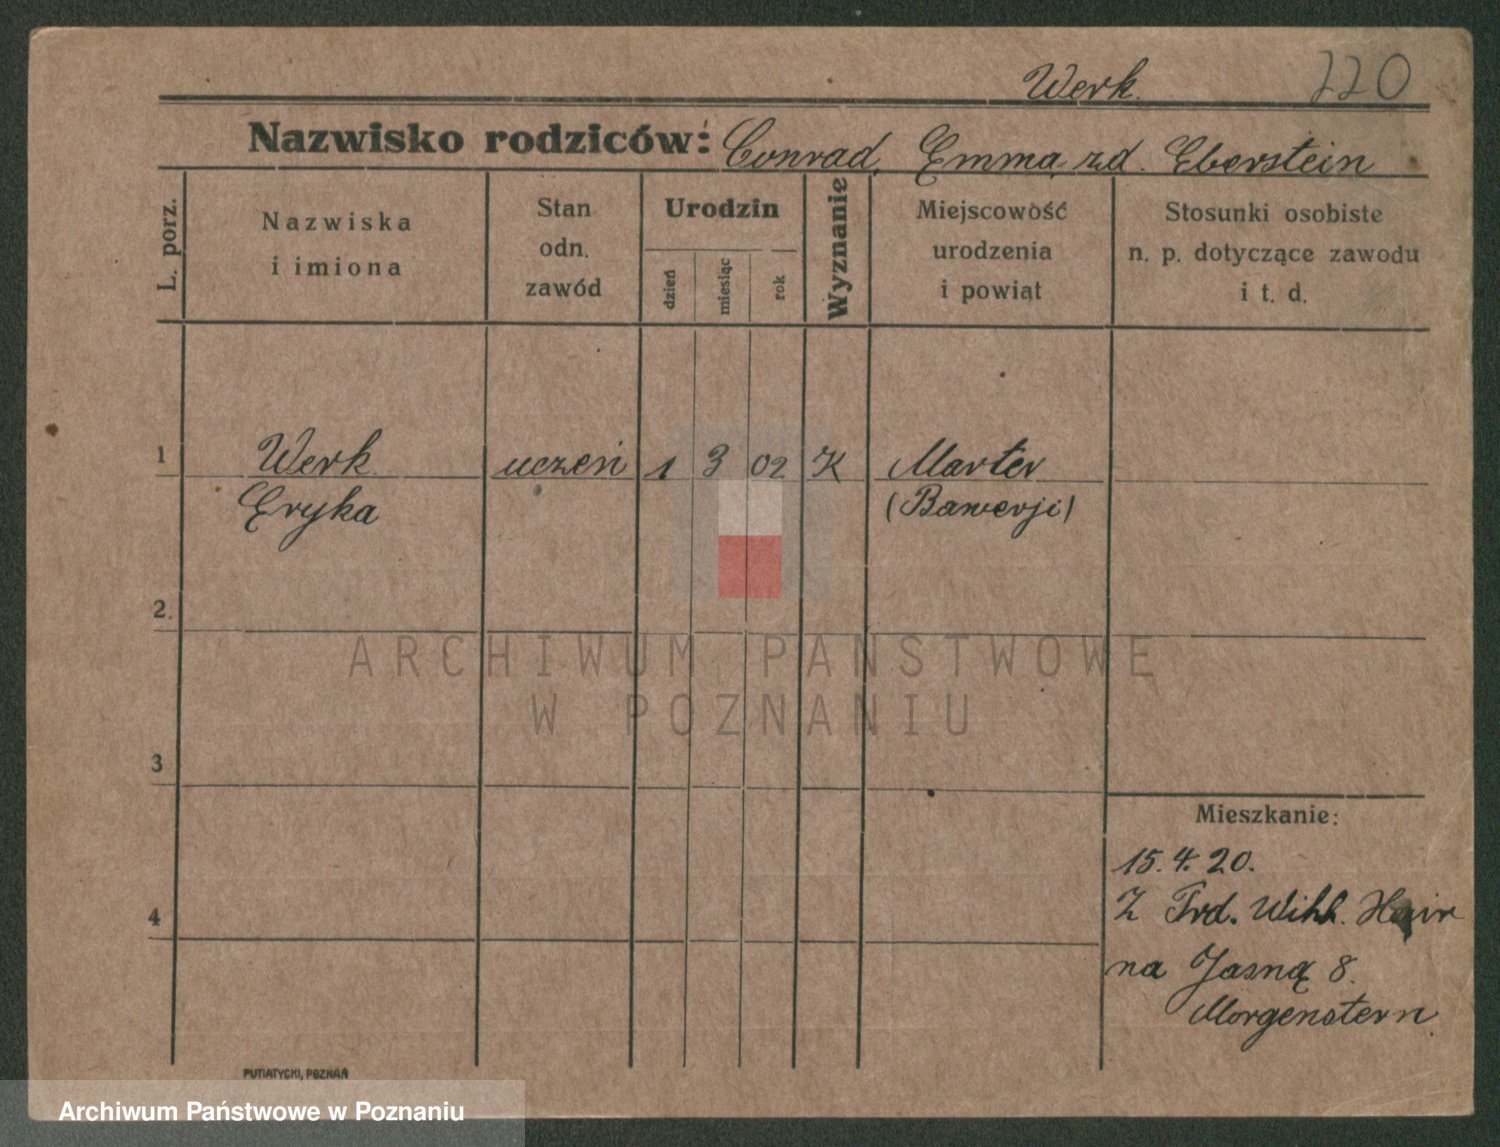 Werk. 220
Nazwisko rodziców: Conrad, Emma zd. Eberstein
L. porz.
Nazwiska
i imiona
Stan
odn.
zawód
Urodzin
dzień
miesiąc
rok
Wyznanie
Miejscowość
urodzenia
i powiat
Stosunki osobiste
n. p. dotyczące zawodu
i t. d.
1 Werk uczeń 1 3 02 K Marter
Eryka (Bawerji)
2.
3
4
Mieszkanie:
15.4.20.
Z Frd. Wihh.
na Jasną 8.
Morgenstern.
PUTIATYCKI, POZNAŃ
ARCHIWUM PAŃSTWOWE
W POZNANIU
Archiwum Państwowe w Poznaniu